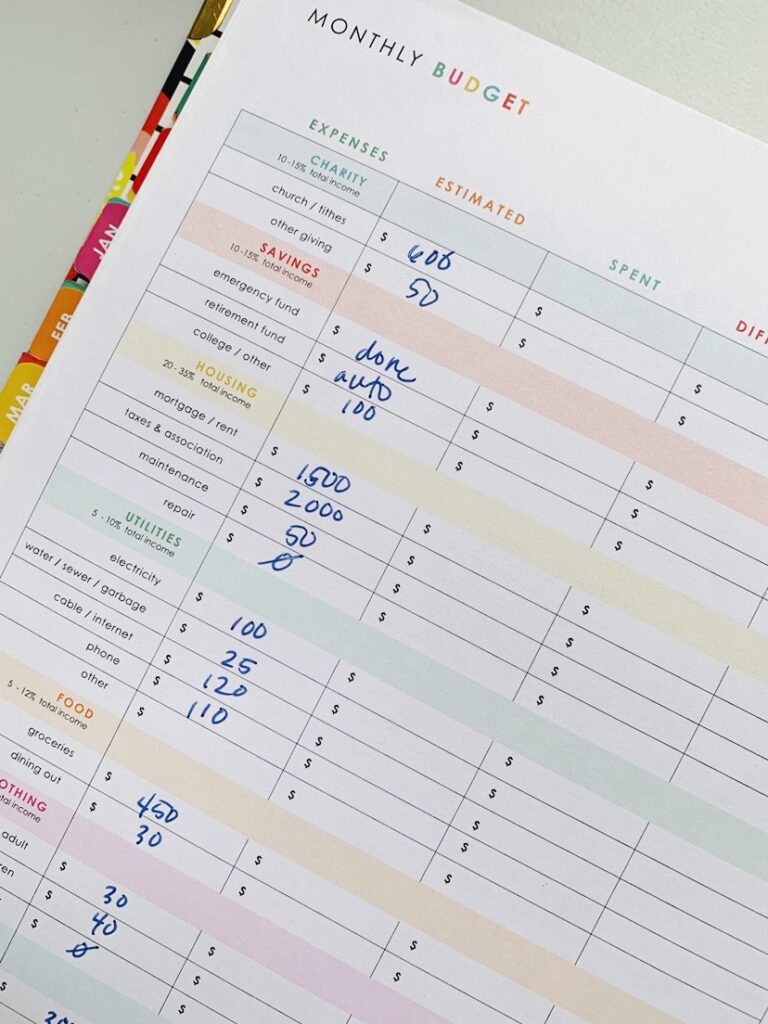 MONTHLY BUDGET
EXPENSES ESTIMATED SPENT
CHARITY
10-15% total income
church / tithes $ 600 $ $
other giving $ 50 $ $
SAVINGS
10-15% total income
emergency fund $ done $ $
retirement fund $ auto $ $
college / other $ 100 $ $
HOUSING
20-35% total income
mortgage / rent $ 1500 $ $
taxes & association $ 2000 $ $
maintenance $ 50 $ $
repair $ 0 $ $
UTILITIES
5-10% total income
electricity $ 100 $ $
water / sewer / garbage $ 25 $ $
cable / internet $ 120 $ $
phone $ 110 $ $
other $ $ $
FOOD
5-12% total income
groceries $ 450 $ $
dining out $ 30 $ $
total income
adult $ 30 $
$ 40 $
$ 0 $
$
JAN
FEB
MAR